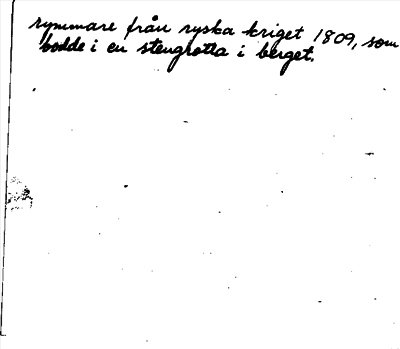 rymmare från ryska kriget 1809, som
bodde i en stengrotta i berget.